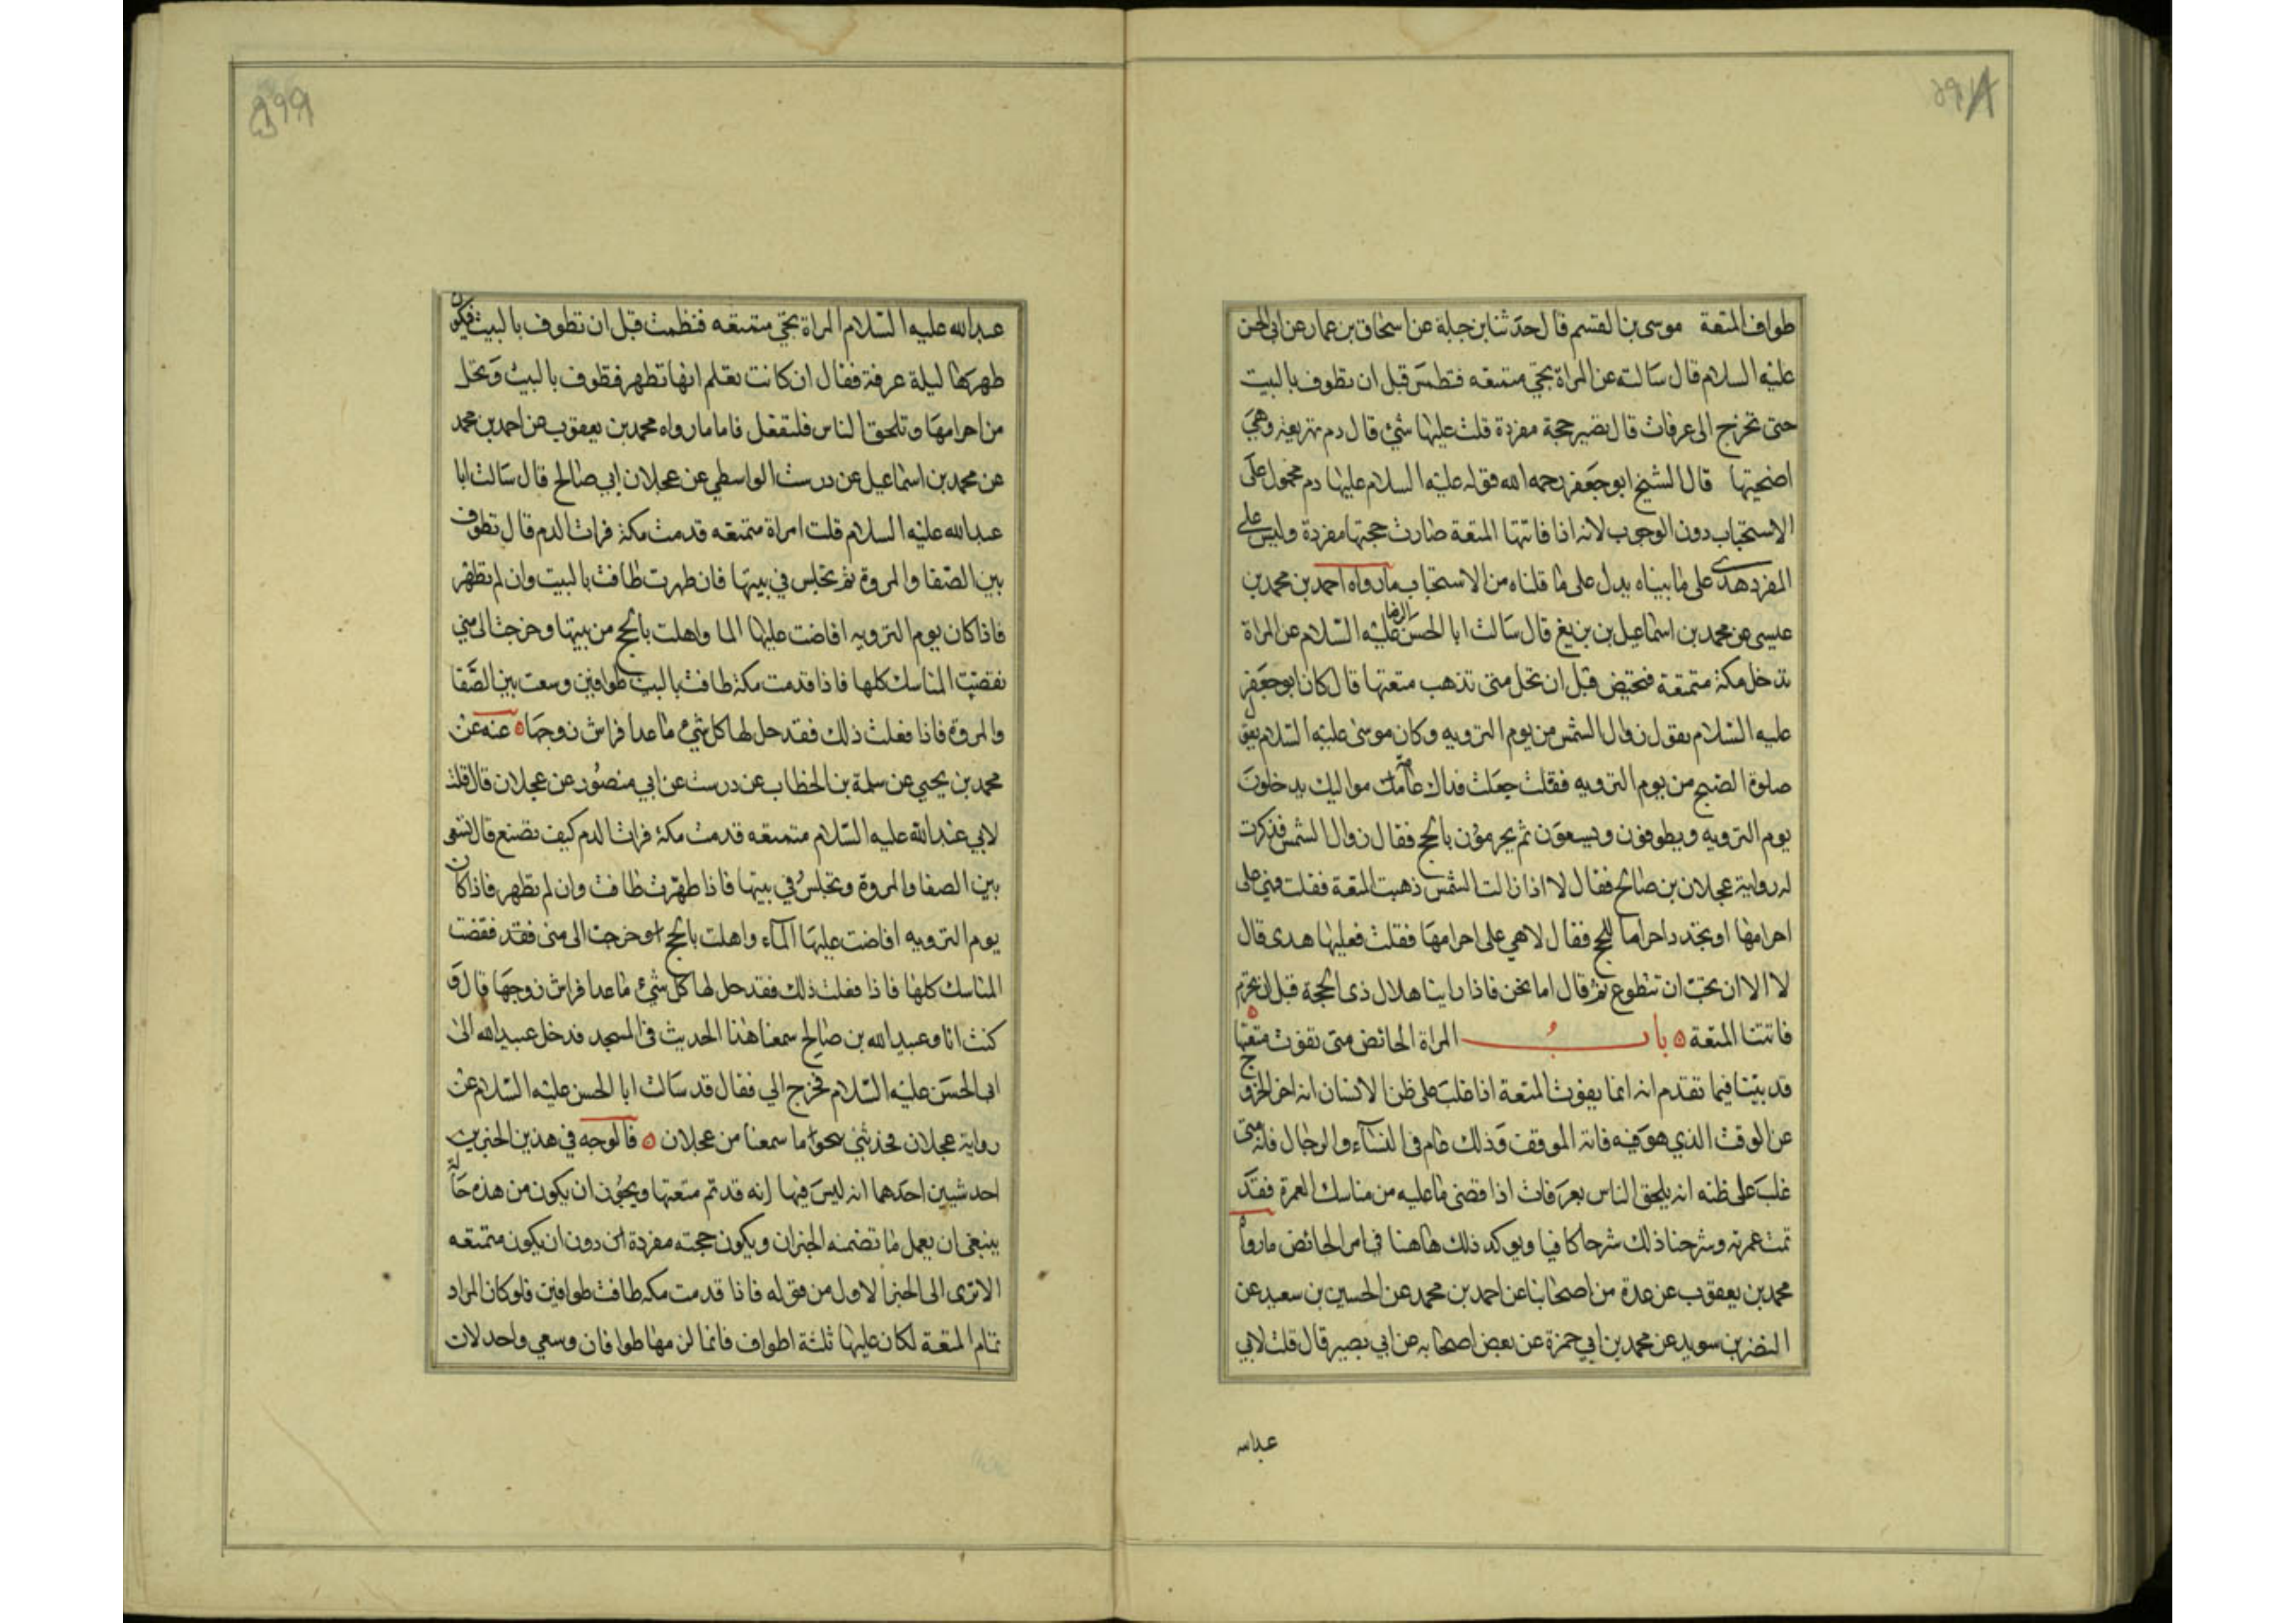 طواف المتعة موسى بن القسم قال حدثنا بن جبلة عن اسحاق بن عمار عن ابى الحسن
عليه السلام قال سالته عن المراة تجئ متمتعه فتطمث قبل ان تطوف بالبيت
حتى تخرج الى عرفات قال تصير حجة مفردة قلت عليها شئ قال دم تهريقه وهي
اضحيتها قال الشيخ ابو جعفر رحمه الله فقوله عليه السلام عليها دم محمول على
الاستحباب دون الوجوب لانه اذا فاتتها المتعة صارت حجتها مفردة وليس على
المفرد هدى على ما بيناه يدل على ما قلناه من الاستحباب ما رواه احمد بن محمد بن
عيسى عن محمد بن اسماعيل بن بزيغ قال سالت ابا الحسن الرضا عليه السلام عن المراة
تدخل مكة متمتعة فتحيض قبل ان تحل متى تذهب متعتها قال كان ابو جعفر
عليه السلام يقول زوال الشمس من يوم الترويه وكان موسى عليه السلام يقول
صلوة الصبح من يوم الترويه فقلت جعلت فداك عامة مواليك يدخلون
يوم الترويه ويطوفون ويسعون ثم يحرمون بالحج فقال زوال الشمس فذكرت
له رواية عجلان بن صالح فقال لا اذا زالت الشمس ذهبت المتعة فقلت فهي على
احرامها او تجدد احراما للحج فقال لا هي على احرامها فقلت فعليها هدى قال
لا الا ان تحب ان تتطوع ثم قال اما نحن فاذا راينا هلال ذى الحجة قبل ان نحرم
فاتتنا المتعة ٥ باب المراة الحائض متى تفوت متعتها ٥
قد بيتنا فيما تقدم انه انما يفوت المتعة اذا غلب على ظن الانسان انه اخر الخروج
عن الوقت الذي هو فيه فاته الموقف وذلك عام فى النسآء والرجال فانه متى
غلب على ظنه انه يلحق الناس بعرفات اذا قضى ما عليه من مناسك العمرة فقد
تمت عمرته وشرحنا ذلك شرحا كافيا ويوكد ذلك هاهنا في امر الحائض ما رواه
محمد بن يعقوب عن عدة من اصحابنا عن احمد بن محمد عن الحسين بن سعيد عن
النضر بن سويد عن محمد بن ابي حمزة عن بعض اصحابه عن ابي بصير قال قلت لابي
عبد الله
عبد الله عليه السلام المراة تجئ متمتعه فتطمث قبل ان تطوف بالبيت فيكون
طهرها ليلة عرفة فقال ان كانت تعلم انها تطهر فتطوف بالبيت وتحل
من احرامها وتلحق الناس فلتفعل فاما ما رواه محمد بن يعقوب عن احمد بن محمد
عن محمد بن اسماعيل عن درست الواسطي عن عجلان ابي صالح قال سالت ابا
عبد الله عليه السلام قلت امراة متمتعه قدمت مكة فرات الدم قال تطوف
بين الصفا والمروة ثم تجلس في بيتها فان طهرت طافت بالبيت وان لم تطهر
فاذا كان يوم الترويه افاضت عليها الما واهلت بالحج من بيتها وخرجت الى منى
فقضت المناسك كلها فاذا قدمت مكة طافت بالبيت طوافين وسعت بين الصفا
والمروة فاذا فعلت ذلك فقد حل لها كل شئ ما عدا فراش زوجها ٥ عنه عن
محمد بن يحيى عن سلمة بن الخطاب عن درست عن ابي منصور عن عجلان قال قلت
لابي عبد الله عليه السلام متمتعه قدمت مكة فرات الدم كيف تصنع قال تسعى
بين الصفا والمروة وتجلس في بيتها فاذا طهرت طافت وان لم تطهر فاذا كان
يوم الترويه افاضت عليها المآء واهلت بالحج وخرجت الى منى فقضت
المناسك كلها فاذا فعلت ذلك فقد حل لها كل شئ ما عدا فراش زوجها قال و
كنت انا وعبيد الله بن صالح سمعنا هذا الحديث فى المسجد فدخل عبيد الله الى
ابى الحسن عليه السلام فخرج الي فقال قد سالت ابا الحسن عليه السلام عن
رواية عجلان فحدثني بنحو ما سمعنا من عجلان ٥ فالوجه في هذين الخبرين
احد شيين احدهما انه ليس فيها انه قد تم متعتها ويجوز ان يكون من هذه حاله
ينبغى ان يعمل ما تضمنه الخبران ويكون حجته مفردة دون ان يكون متمتعه
الا ترى الى الخبر الاول من قوله فاذا قدمت مكه طافت طوافين فلو كان المراد
تمام المتعة لكان عليها ثلثة اطواف فانما لزمها طوافان وسعي واحد لان